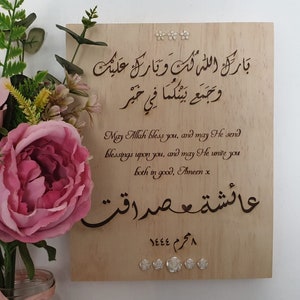 بَارَكَ اللّٰهُ لَكَ وَبَارَكَ عَلَيْكَ
وَجَمَعَ بَيْنَكُمَا فِي خَيْرٍ
May Allah bless you, and may He send
blessings upon you, and may He unite you
both in good, Ameen x
عائشة صداقت
٨ محرم ١٤٤٤